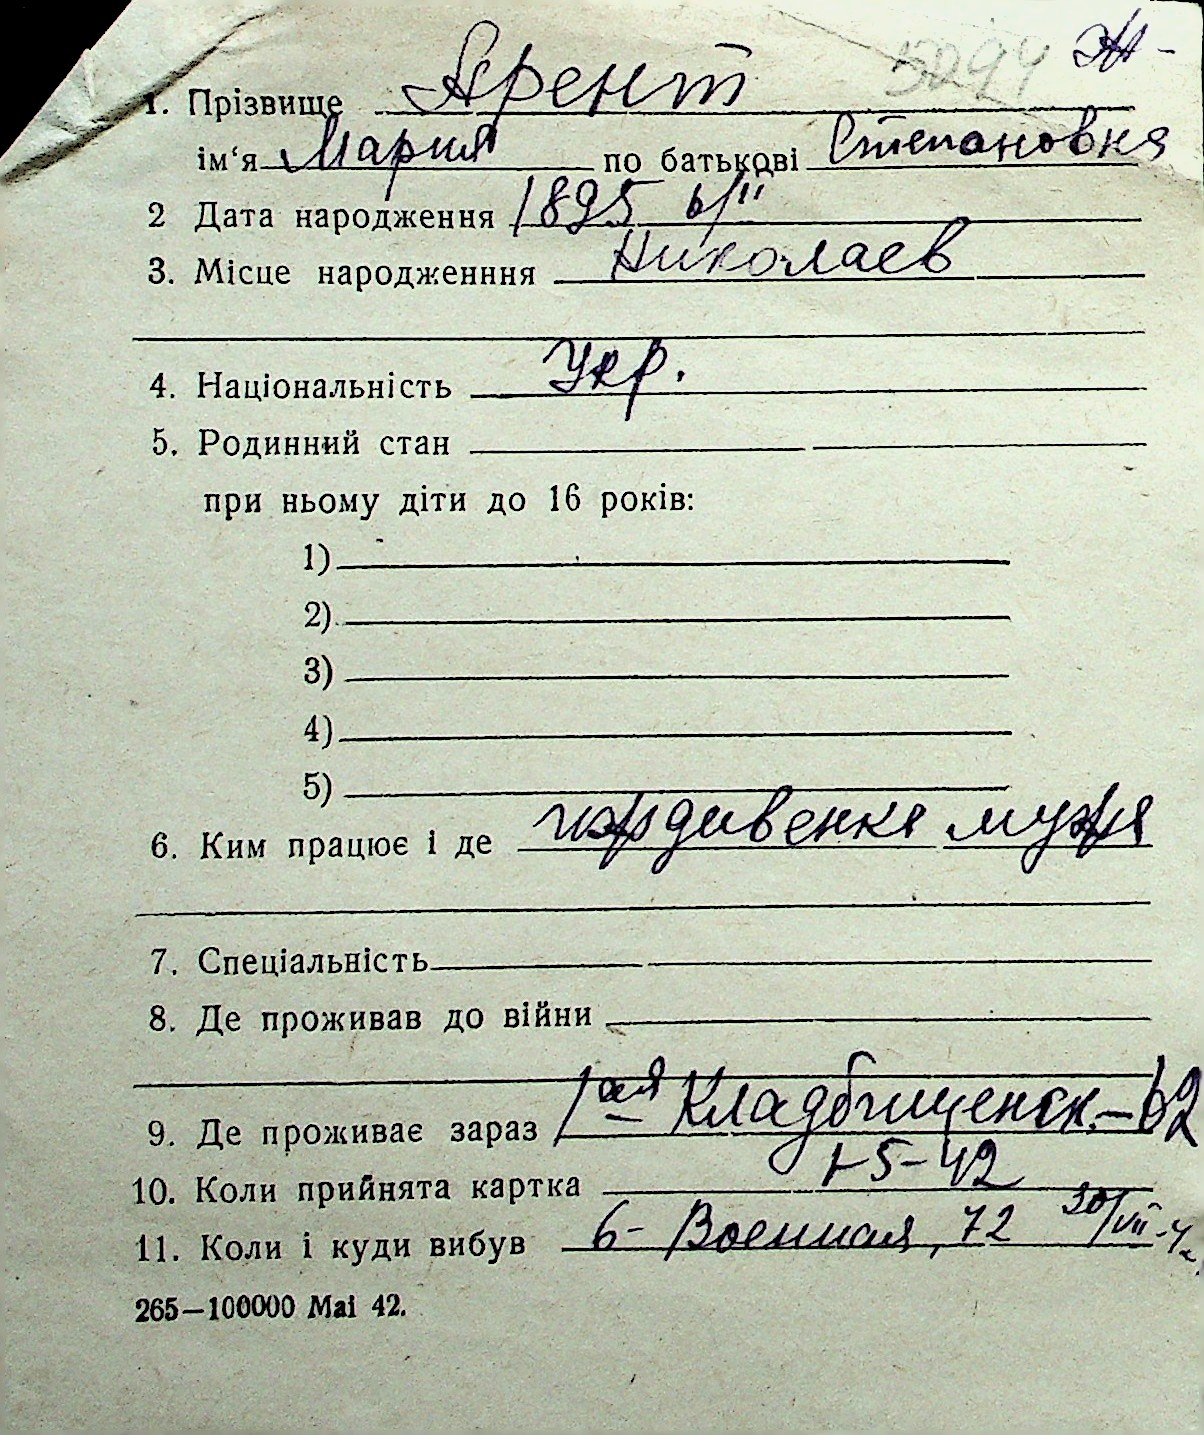 5294 Ж-
1. Прізвище Арент
ім‘я Мария по батькові Степановна
2 Дата народження 1895 6/II
3. Місце народженння Николаев
4. Національність Укр.
5. Родинний стан
при ньому діти до 16 років:
1)
2)
3)
4)
5)
6. Ким працює і де иждивенка мужа
7. Спеціальність
8. Де проживав до війни
9. Де проживає зараз 1ая Кладбищенск.-62
10. Коли прийнята картка 1-5-42
11. Коли і куди вибув 6-Военная, 72 30/VII-42
265—100000 Mai 42.